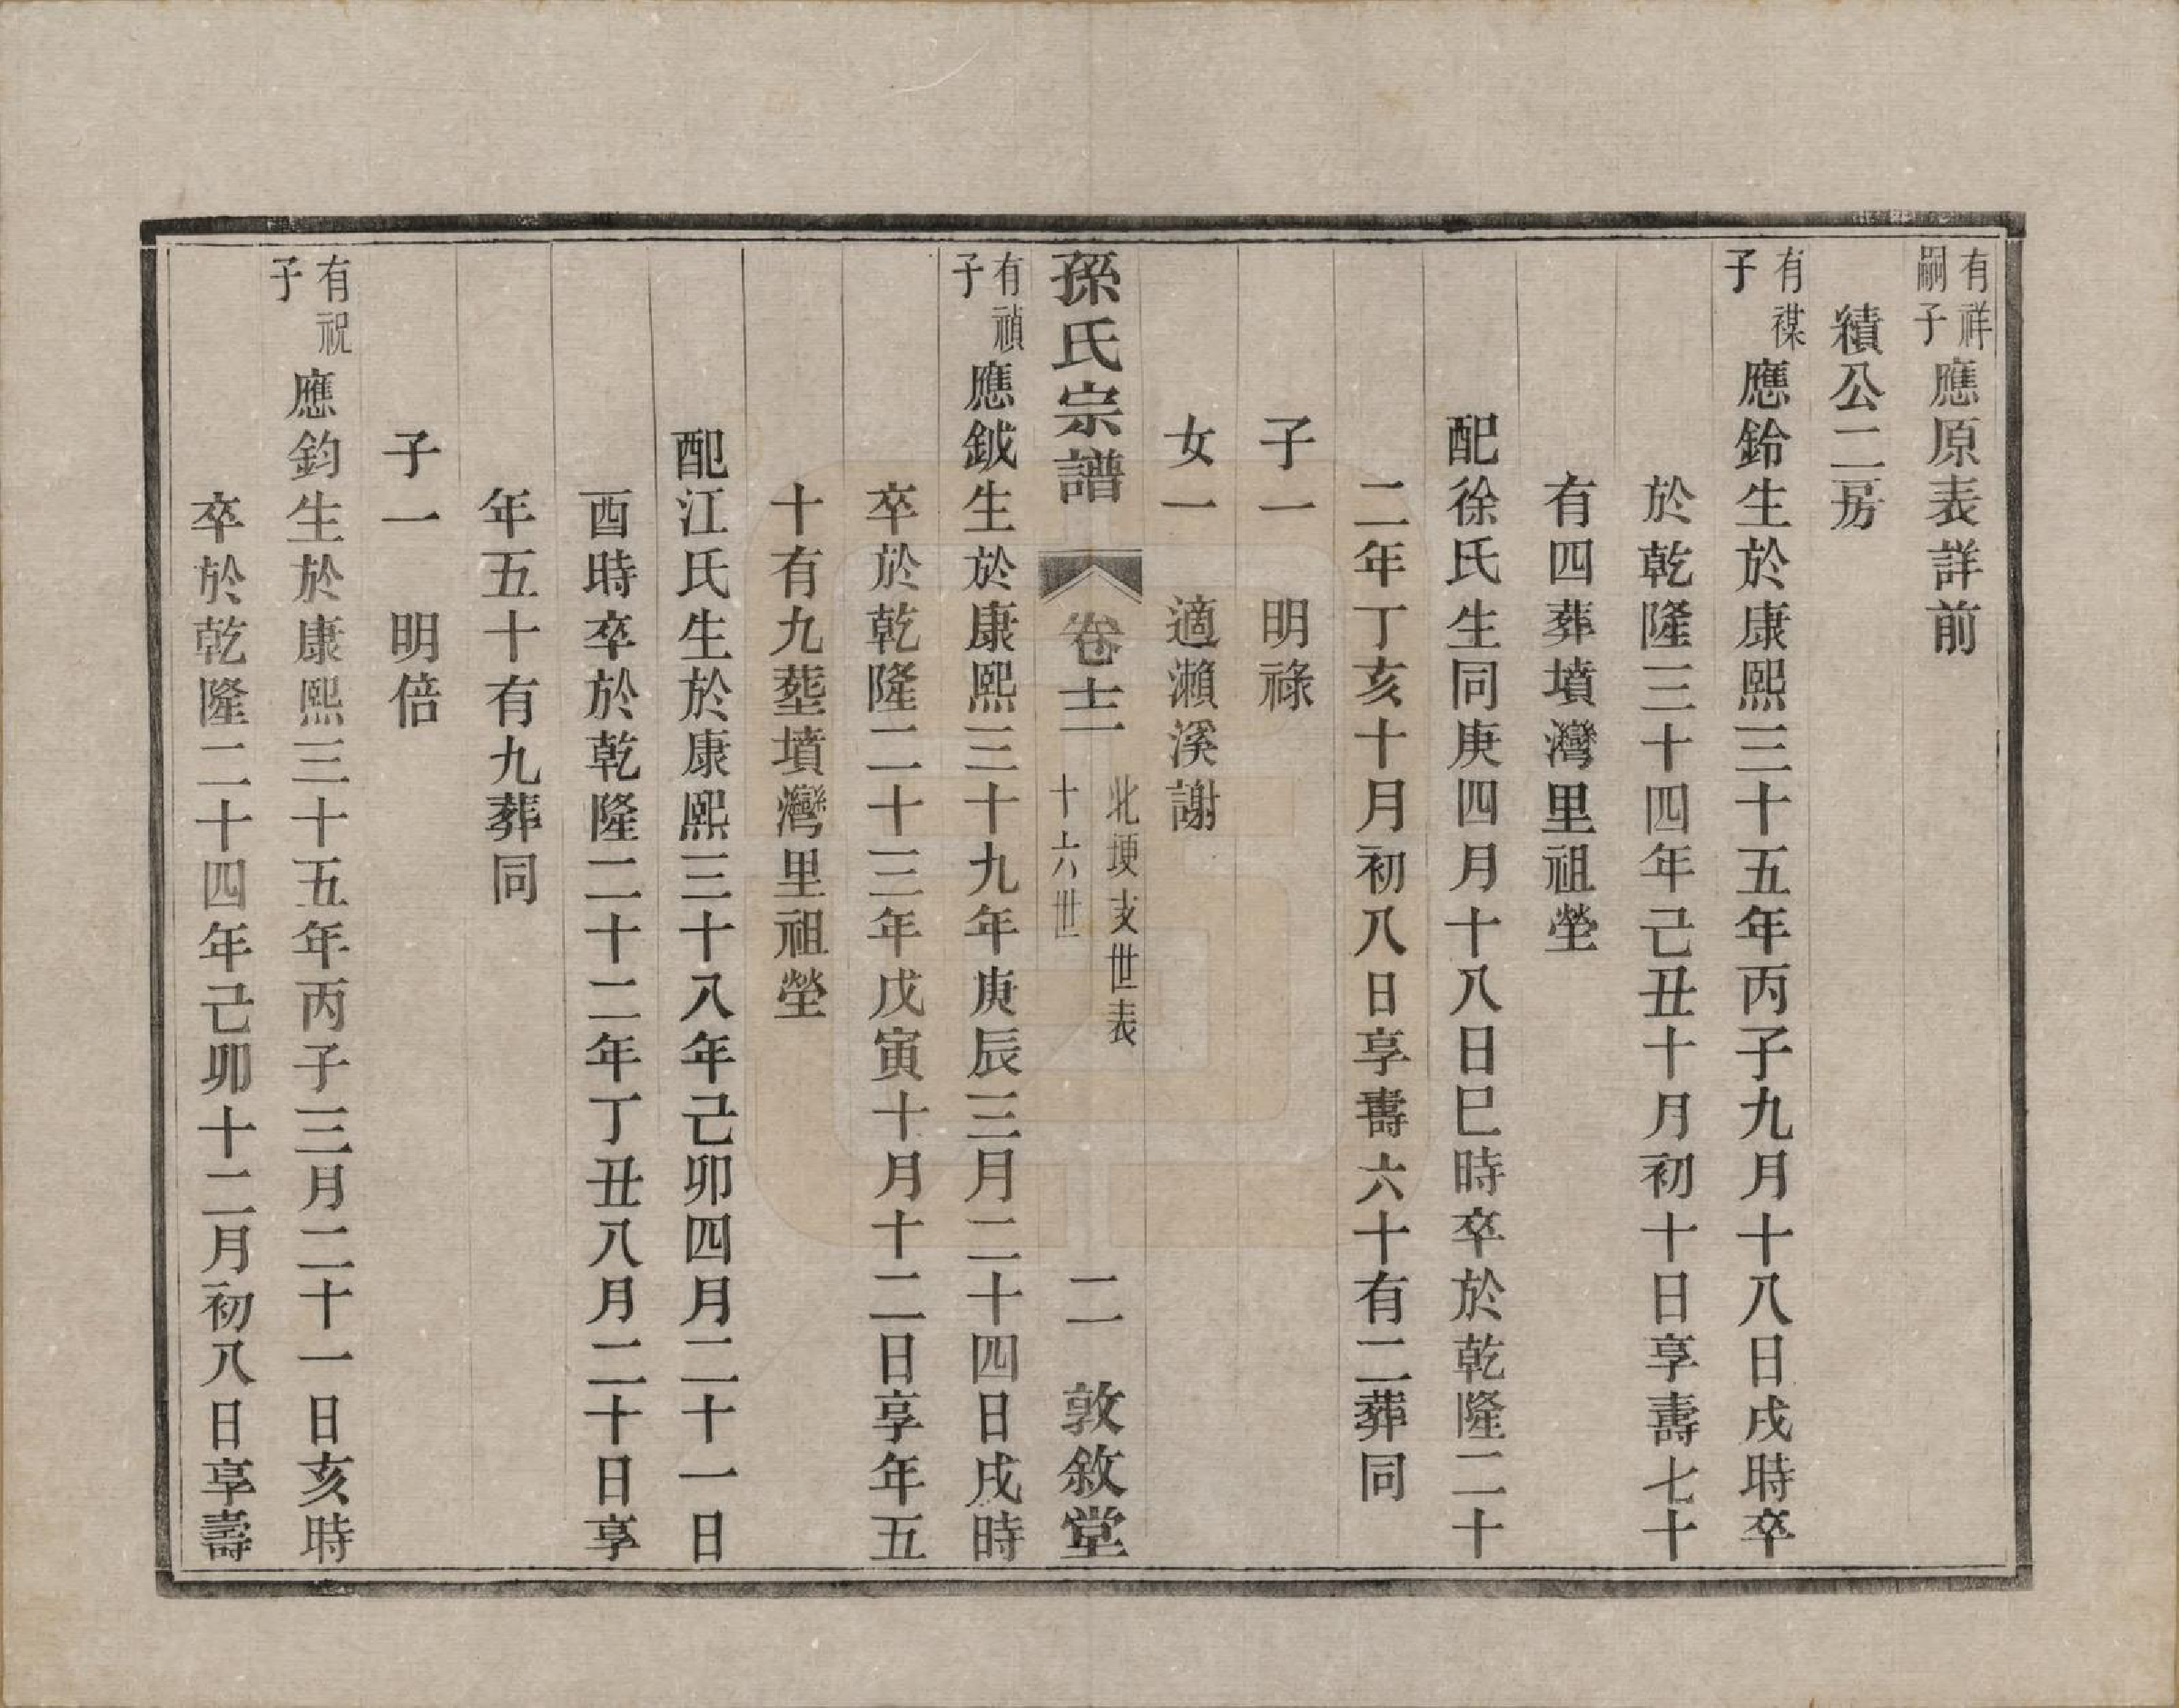 有祥嗣子應原表詳前
績公二房
有禖子應鈴生於康熙三十五年丙子九月十八日戌時卒
於乾隆三十四年己丑十月初十日享壽七十
有四葬墳灣里祖塋
配徐氏生同庚四月十八日巳時卒於乾隆二十
二年丁亥十月初八日享壽六十有二葬同
子一 明祿
女一 適瀨溪謝
孫氏宗譜 卷十二 北埂支世表 十六世 二 敦敘堂
有禎子應鉞生於康熙三十九年庚辰三月二十四日戌時
卒於乾隆二十三年戊寅十月十二日享年五
十有九塟墳灣里祖塋
配江氏生於康熙三十八年己卯四月二十一日
酉時卒於乾隆二十二年丁丑八月二十日享
年五十有九葬同
子一 明倍
有祝子應鈞生於康熙三十五年丙子三月二十一日亥時
卒於乾隆二十四年己卯十二月初八日享壽